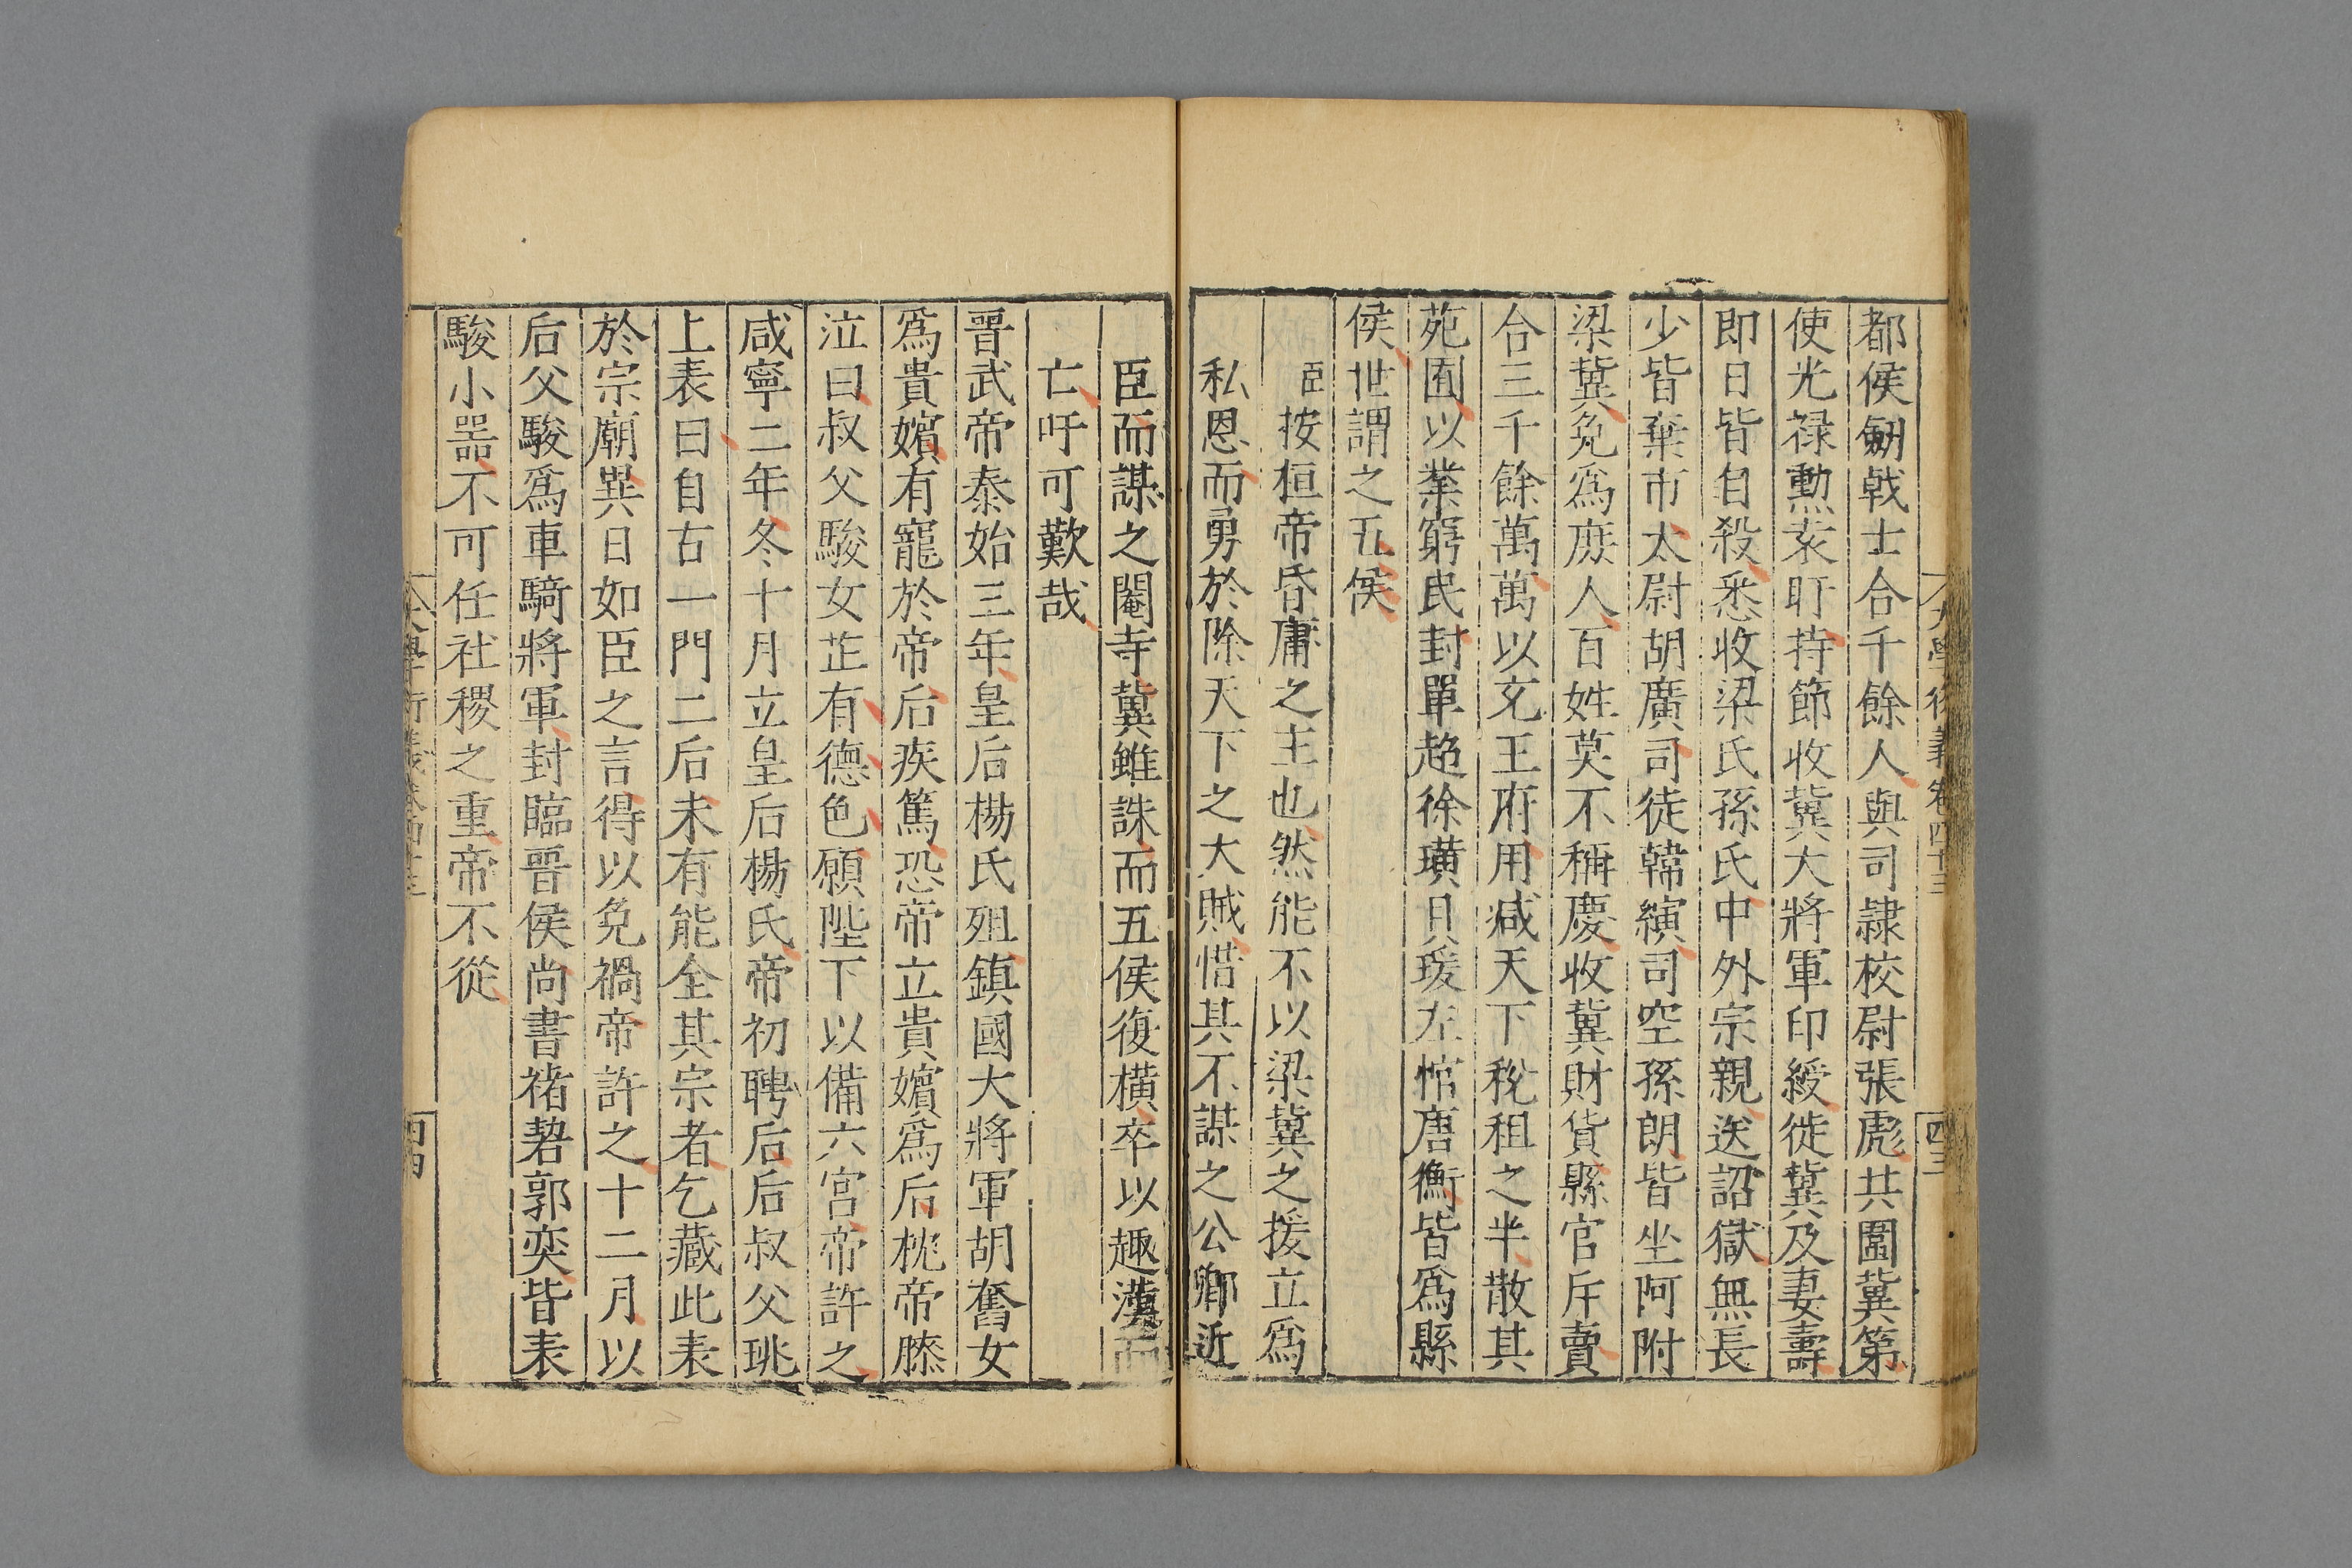 都侯劒戟士合千餘人與司隷校尉張彪共圍冀第
使光祿勲袁盱持節收冀大將軍印綬徙冀及妻壽
即日皆自殺悉收梁氏孫氏中外宗親送詔獄無長
少皆棄市太尉胡廣司徒韓縯司空孫朗皆坐阿附
梁冀免爲庶人百姓莫不稱慶收冀財貨縣官斥賣
合三千餘萬萬以充王府用減天下稅租之半散其
苑囿以業窮民封單超徐璜具瑗左悺唐衡皆爲縣
侯世謂之五侯
臣按桓帝昏庸之主也然能不以梁冀之援立爲
私恩而勇於除天下之大賊惜其不謀之公卿近
臣而謀之閹寺冀雖誅而五侯復橫卒以趣漢而
亡吁可歎哉
晋武帝泰始三年皇后楊氏殂鎮國大將軍胡奮女
爲貴嬪有寵於帝后疾篤恐帝立貴嬪爲后枕帝膝
泣曰叔父駿女芷有德色願陛下以備六宮帝許之
咸寧二年冬十月立皇后楊氏帝初聘后后叔父珧
上表曰自古一門二后未有能全其宗者乞藏此表
於宗廟異日如臣之言得以免禍帝許之十二月以
后父駿爲車騎將軍封臨晋侯尚書褚䂮郭奕皆表
駿小噐不可任社稷之重帝不從